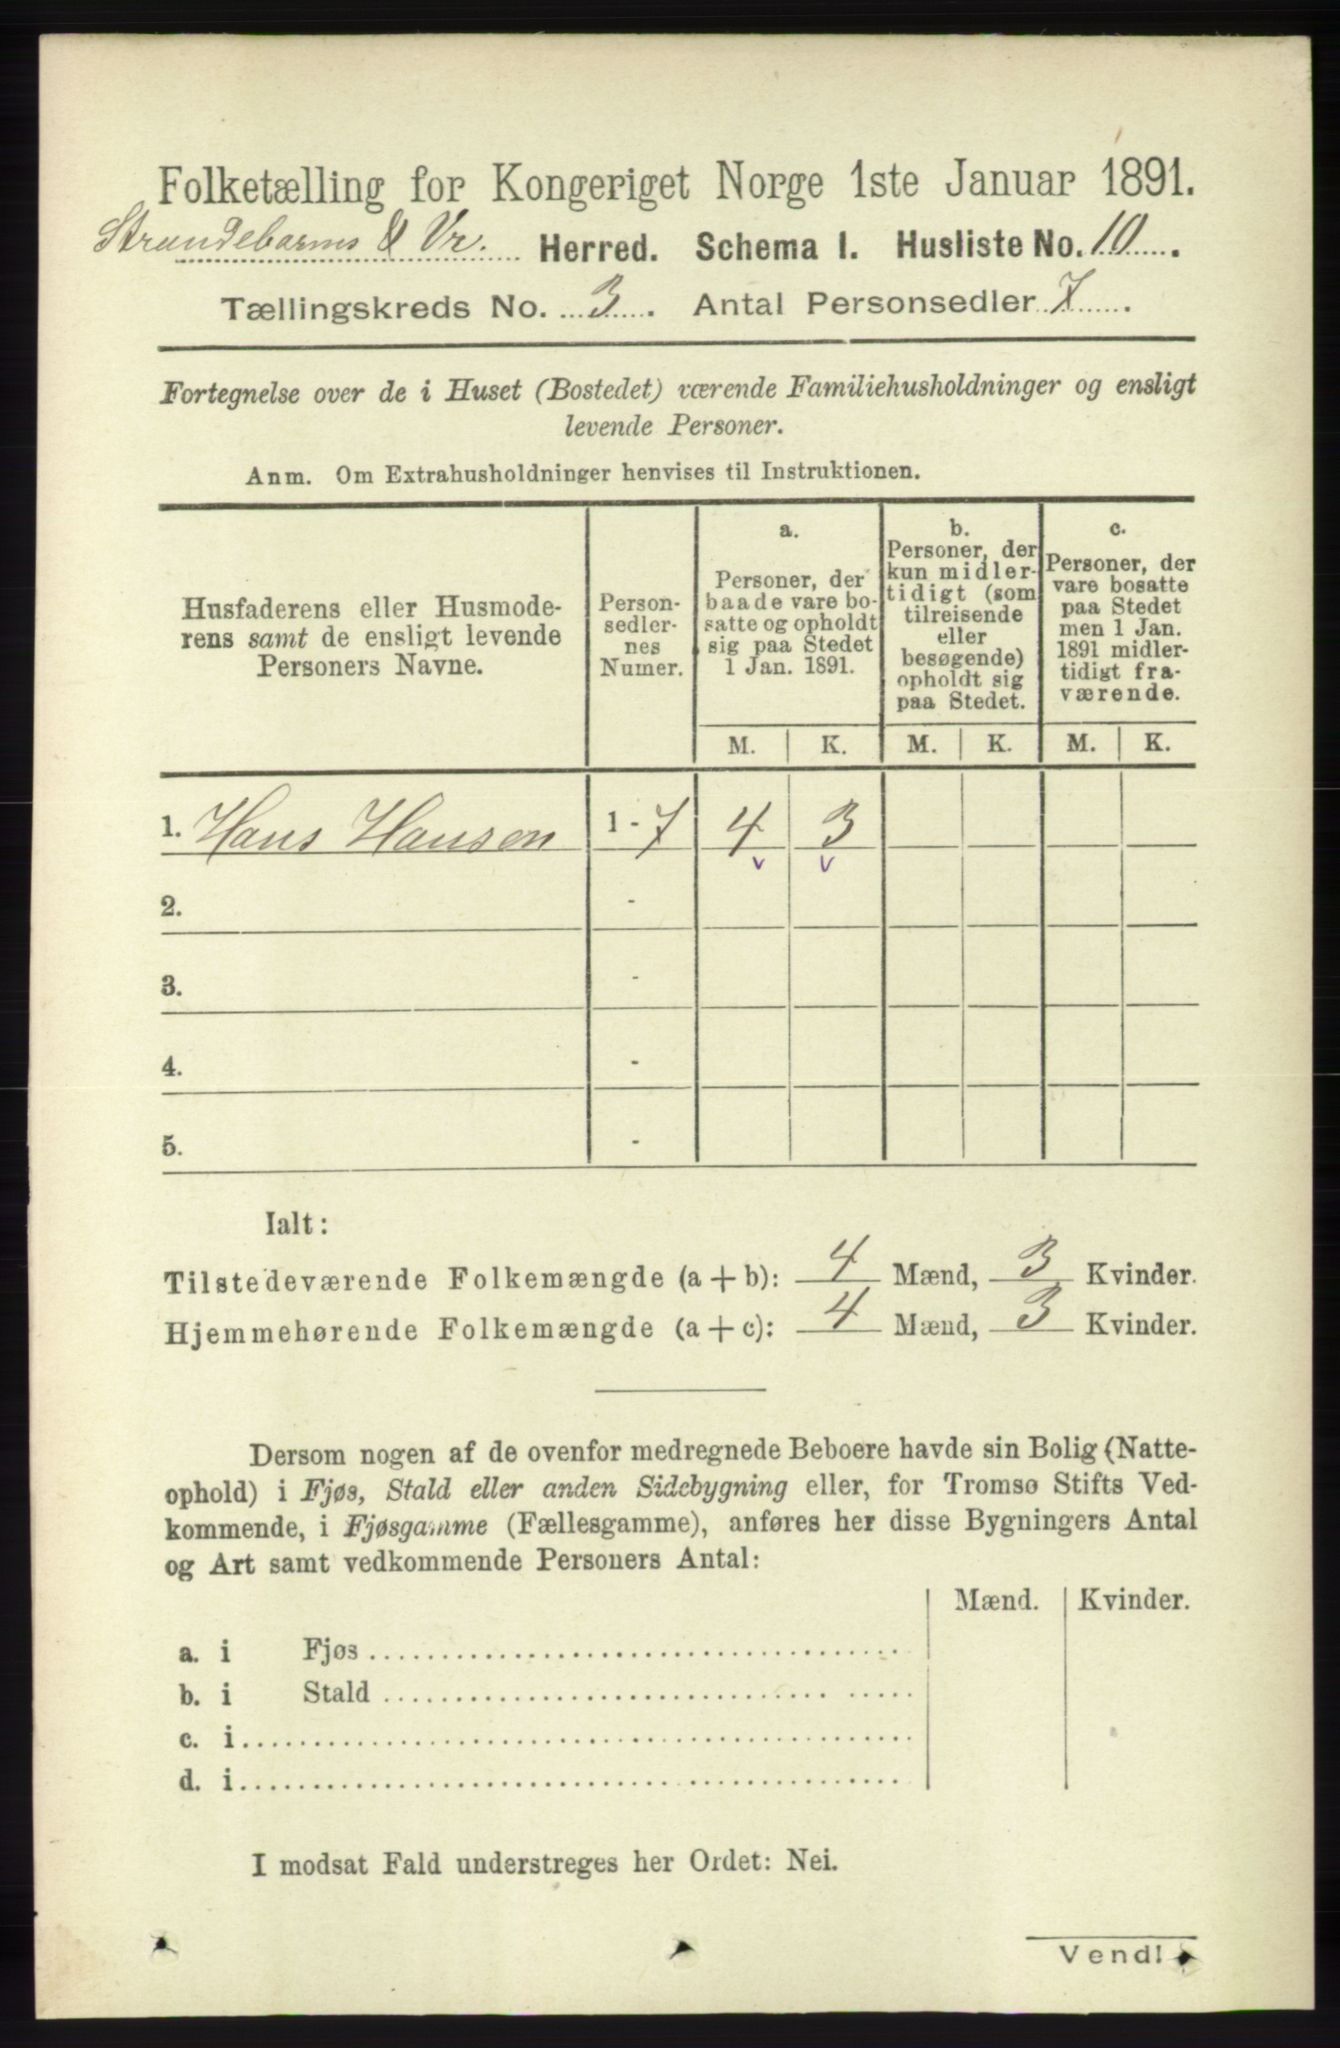 Folketælling for Kongeriget Norge 1ste Januar 1891.
Strandebarms & Vr. Herred. Schema I. Husliste No. 10.
Tællingskreds No. 3. Antal Personsedler 7.
Fortegnelse over de i Huset (Bostedet) værende Familiehusholdninger og ensligt
levende Personer.
Anm. Om Extrahusholdninger henvises til Instruktionen.
Husfaderens eller Husmode-
rens samt de ensligt levende
Personers Navne.
Person-
sedler-
nes
Numer.
a.
Personer, der
baade vare bo-
satte og opholdt
sig paa Stedet
1 Jan. 1891.
b.
Personer, der
kun midler-
tidigt (som
tilreisende
eller
besøgende)
opholdt sig
paa Stedet.
c.
Personer, der
vare bosatte
paa Stedet
men 1 Jan.
1891 midler-
tidigt fra-
værende.
M. K. M. K. M. K.
1. Hans Hansen 1 - 7 4 3
v v
2. -
3. -
4. -
5. -
Ialt:
Tilstedeværende Folkemængde (a + b): 4 Mænd, 3 Kvinder.
Hjemmehørende Folkemængde (a + c): 4 Mænd, 3 Kvinder.
Dersom nogen af de ovenfor medregnede Beboere havde sin Bolig (Natte-
ophold) i Fjøs, Stald eller anden Sidebygning eller, for Tromsø Stifts Ved-
kommende, i Fjøsgamme (Fællesgamme), anføres her disse Bygningers Antal
og Art samt vedkommende Personers Antal:
Mænd. Kvinder.
a. i Fjøs
b. i Stald
c. i
d. i
I modsat Fald understreges her Ordet: Nei.
Vend!